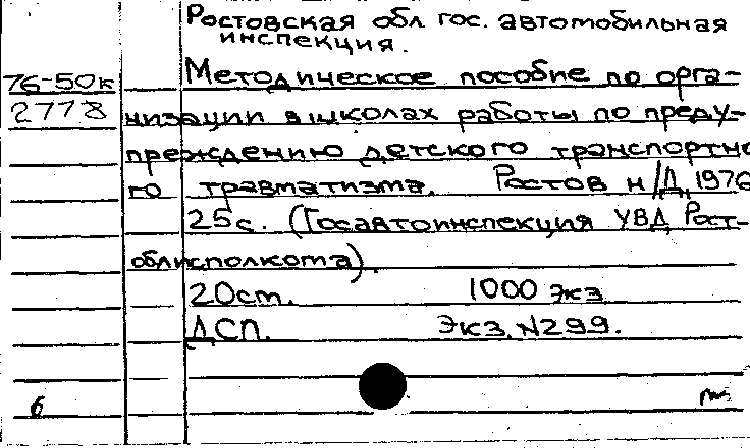 Ростовская обл гос. автомобильная
инспекция.
76-50к
Методическое пособие по орга-
2778
низации в школах работы по преду-
преждению детского транспортно
го травматизма. Ростов н/Д, 1976
25с. (Госавтоинспекция УВД Рост-
облисполкома).
20см. 1000 экз
ДСП. Экз. N299.
6